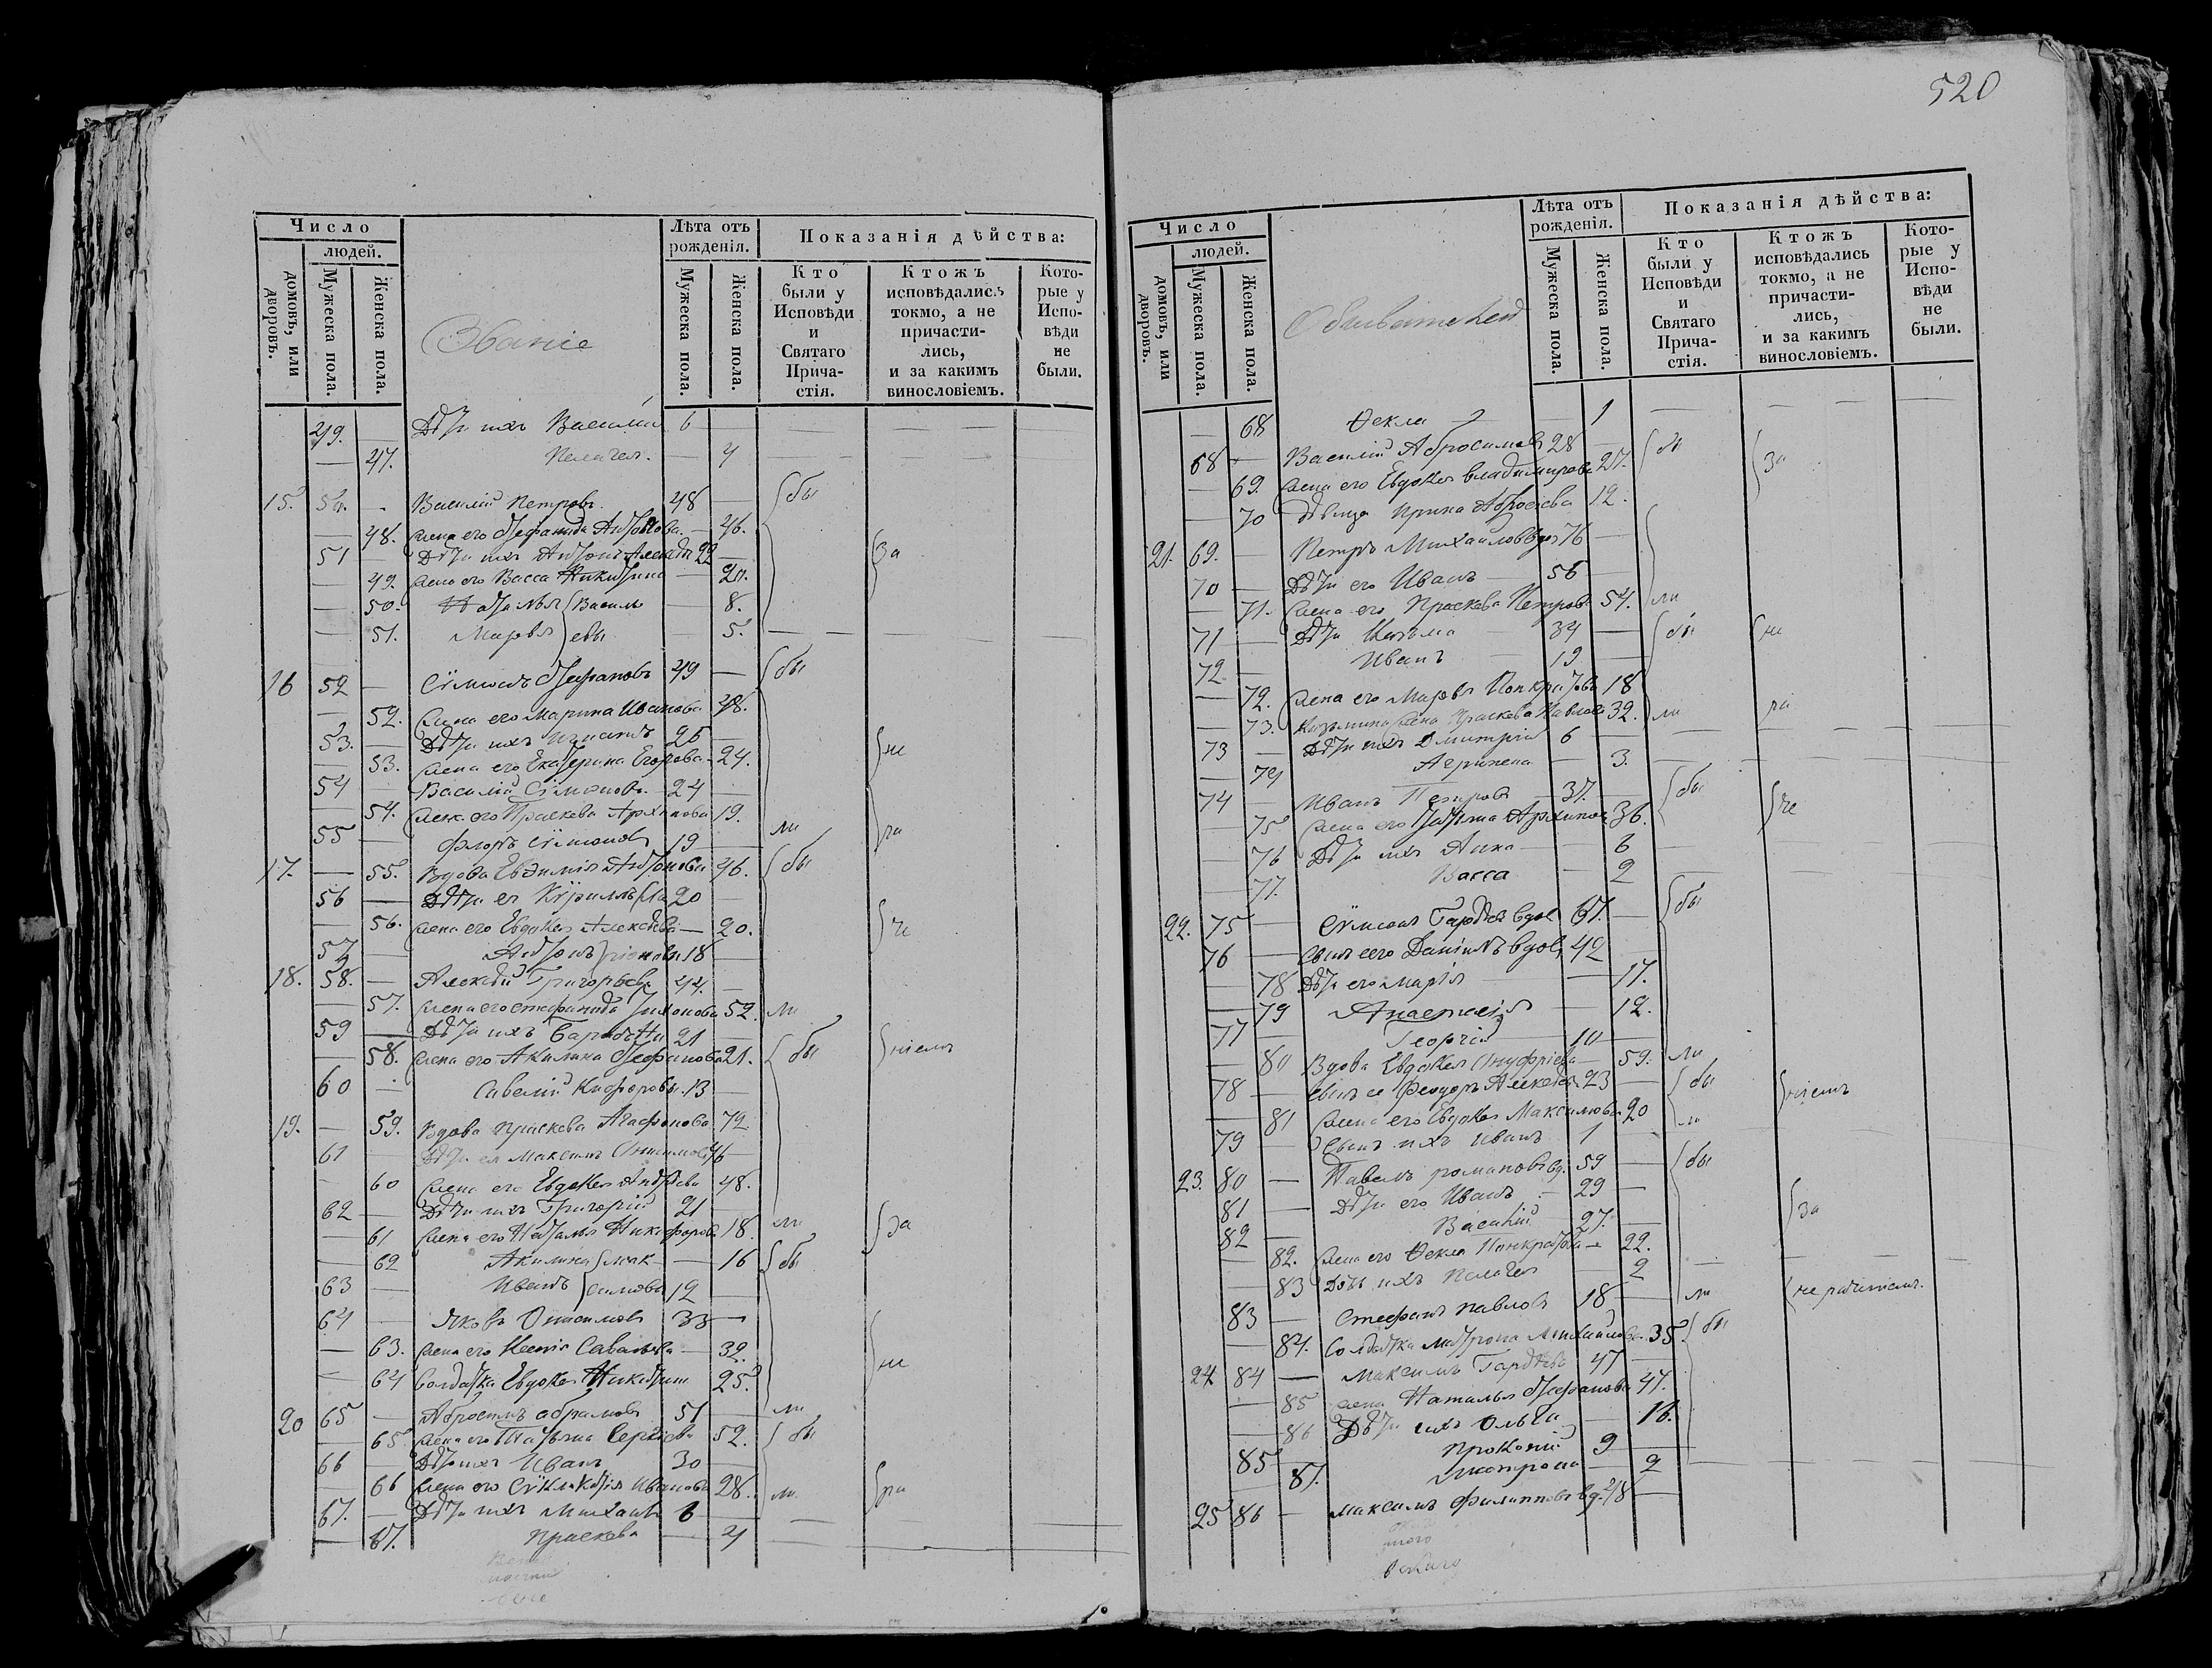 520
Число
людей.
домовъ, или дворовъ.
Мужеска пола.
Женска пола.
Званіе
Лѣта отъ рожденія.
Мужеска пола.
Женска пола.
Показанія дѣйства:
Кто были у Исповѣди и Святаго Прича-стія.
Ктожъ исповѣдались токмо, а не причасти-лись, и за какимъ винословіемъ.
Кото-рые у Испо-вѣди не были.
49. — Дѣти ихъ Василій 6 —
— 47. Пелагея — 4
15. 50. - Василій Петровъ 48 — бы
— 48. жена его Стефанида Антонова — 46.
51 Дѣти ихъ Антонъ 22 — За
— 49. жена его Васса Никитина — 20.
— 50. Наталья Василь — 8.
— 51. Марфа евы — 5.
16 52 — Сѵмеонъ Стефановъ 49 — бы
— 52. жена его Марина Иванова 48.
53. — Дѣти ихъ 26 — не
— 53. жена его Екатерина Егорова 24.
54 — Василій Сѵмеоновъ 24 —
54. жена его Праскева Архипова 19.
55 — Флоръ Сѵмеоновъ 19 — ли ра
17. — 55. Вдова Евѳимія Антонова 46. бы
56 — Дѣти ея Кѵриллъ 20 —
— 56. жена его Евдокея Алексѣева — 20. че
57 — Антонъ 18 —
18. 58. — Алексѣй Григорьевъ 44. —
— 57. жена его Стефанида Тихонова 52. ли
59 — Дѣти ихъ 21 —
— 58. жена его Акилина Стефанова 21. бы ніемъ
60 — Савелій 13 —
19. — 59. Вдова Праскева Агафонова 72
61 — Дѣти ея Максимъ 46 —
— 60 жена его Евдокея Андреева 48.
62 — Дѣти ихъ Григорій 21 —
— 61 жена его Наталья Никифорова 18. ли За
— 62 Акилина мак — 16 бы
63 — Иванъ симовы 12 —
64 — Яковъ 33 —
— 63. жена его Ксенія Савельева — 32.
— 64 Солдатка Евдокея Никитина 25. не
20 65 — Абросимъ Абрамовъ 51 — ли
— 65 жена его Татьяна Сергеева 52. бы
66 — Дѣти ихъ Иванъ 30 —
— 66 жена его Сѵнклитикія Иванова 28. ли ра
67. — Дѣти ихъ Михаилъ 6 —
— 67. Праскева — 4
Число
людей.
домовъ, или дворовъ.
Мужеска пола.
Женска пола.
Обывателей
Лѣта отъ рожденія.
Мужеска пола.
Женска пола.
Показанія дѣйства:
Кто были у Исповѣди и Святаго Прича-стія.
Ктожъ исповѣдались токмо, а не причасти-лись, и за какимъ винословіемъ.
Кото-рые у Испо-вѣди не были.
— 68 Ѳекла — 1
68 — Василій Абросимовъ 28 — бы За
— 69. жена его Евдокея Владимирова 27.
— 70 дѣвица Ирина 12.
21. 69. — Петръ Михайловъ вдов 76 —
70 — Дѣти его Иванъ — 56 —
— 71. жена его Праскева Петрова 54. ли
71 — Дѣти Козьма — 34 — бы не
72 — Иванъ — 19 —
— 72. жена его Марфа Понкратова 18
— 73. Козьмина жена Праскева Павлова 32. ли ра
73 — Дѣти ихъ Дмитрій 6 —
— 74 Агрипена — 3.
74 — Иванъ Петровъ 37. — бы че
— 75 жена его Татьяна Архипова 36.
— 76 Дѣти ихъ Анна — 6
— 77. Васса — 2
22. 75 — Сѵмеонъ Гордѣевъ вдов 67. — бы
76 — Сынъ его Даніилъ вдов 42 —
— 78 Дѣти его Марія — 17.
— 79 Анастасія — 12.
77 — Георгій 10 —
— 80 Вдова Евдокея Онуфріева — 59. ли
78 — Сынъ ея Феодоръ Алексѣевъ 23 — бы ніемъ
— 81 жена его Евдокея Максимова 20 ли
79 — Сынъ ихъ Иванъ 1 —
23. 80 — Павелъ Романовъ вд. 59 — бы
81 — Дѣти его Иванъ — 29 —
82 — Василій 27. — За
— 82. жена его Ѳекла Понкратова — 22.
— 83 Дочь ихъ Пелагея — 2
83 — Стефанъ Павловъ 18 — ли нерадѣніемъ.
— 84. Солдатка Матрона Михайлова 35. бы
24 84 — Максимъ Гордѣевъ 47 —
— 85 жена Наталья Стефанова 47.
— 86 Дѣти ихъ Ольга — 16.
85 Прокопій 9 —
— 87. Матрона — 2
25 86 — Максимъ Филипповъ вд. 48 —